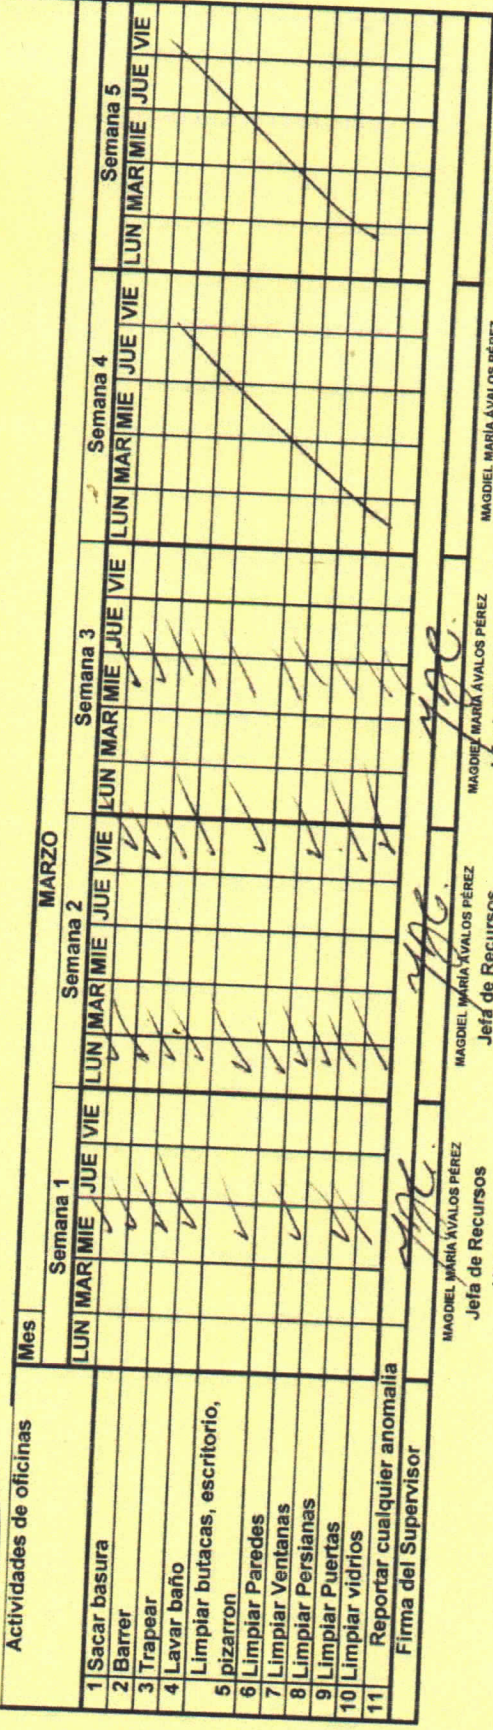 Actividades de oficinas
Mes MARZO
Semana 1 Semana 2 Semana 3 Semana 4 Semana 5
LUN MAR MIE JUE VIE LUN MAR MIE JUE VIE LUN MAR MIE JUE VIE LUN MAR MIE JUE VIE LUN MAR MIE JUE VIE
1 Sacar basura
2 Barrer
3 Trapear
4 Lavar baño
Limpiar butacas, escritorio,
5 pizarron
6 Limpiar Paredes
7 Limpiar Ventanas
8 Limpiar Persianas
9 Limpiar Puertas
10 Limpiar vidrios
11 Reportar cualquier anomalia
Firma del Supervisor
MAGDIEL MARÍA ÁVALOS PÉREZ MAGDIEL MARÍA ÁVALOS PÉREZ MAGDIEL MARÍA ÁVALOS PÉREZ MAGDIEL MARÍA ÁVALOS PÉREZ
Jefa de Recursos Jefa de Recursos